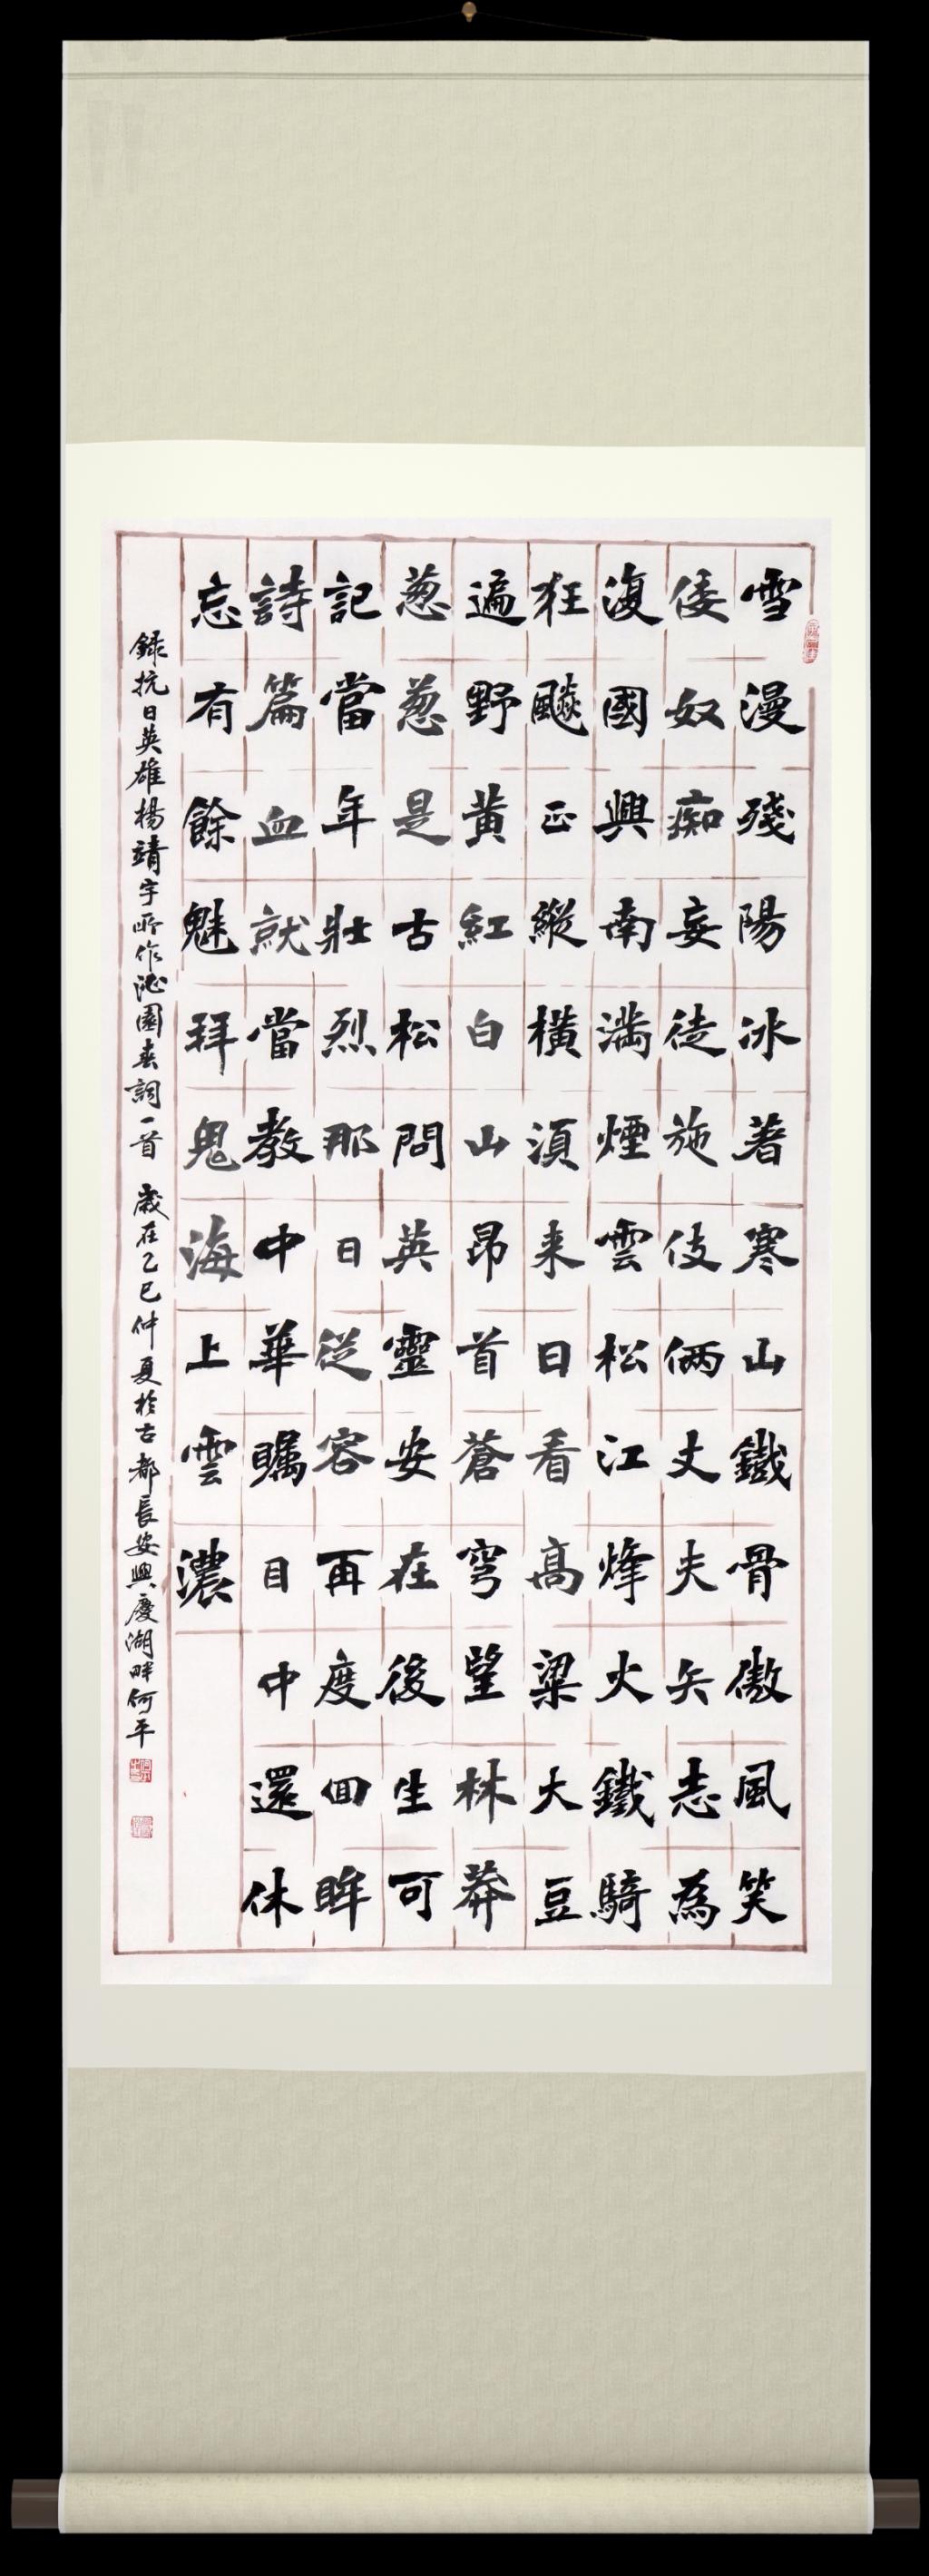 雪漫殘陽冰著寒山鐵骨傲風笑
倭奴痴妄徒施伎倆丈夫矢志為
復國興南滿煙雲松江烽火鐵騎
狂飈正縱橫湏来日看高粱大豆
遍野黃紅白山昂首蒼穹望林莽
葱葱是古松問英靈安在後生可
記當年壯烈那日從容再度回眸
詩篇血就當教中華矚目中還休
忘有餘魅拜鬼海上雲濃
録抗日英雄楊靖宇所作沁園春詞一首 歲在乙巳仲夏於古都長安興慶湖畔何平